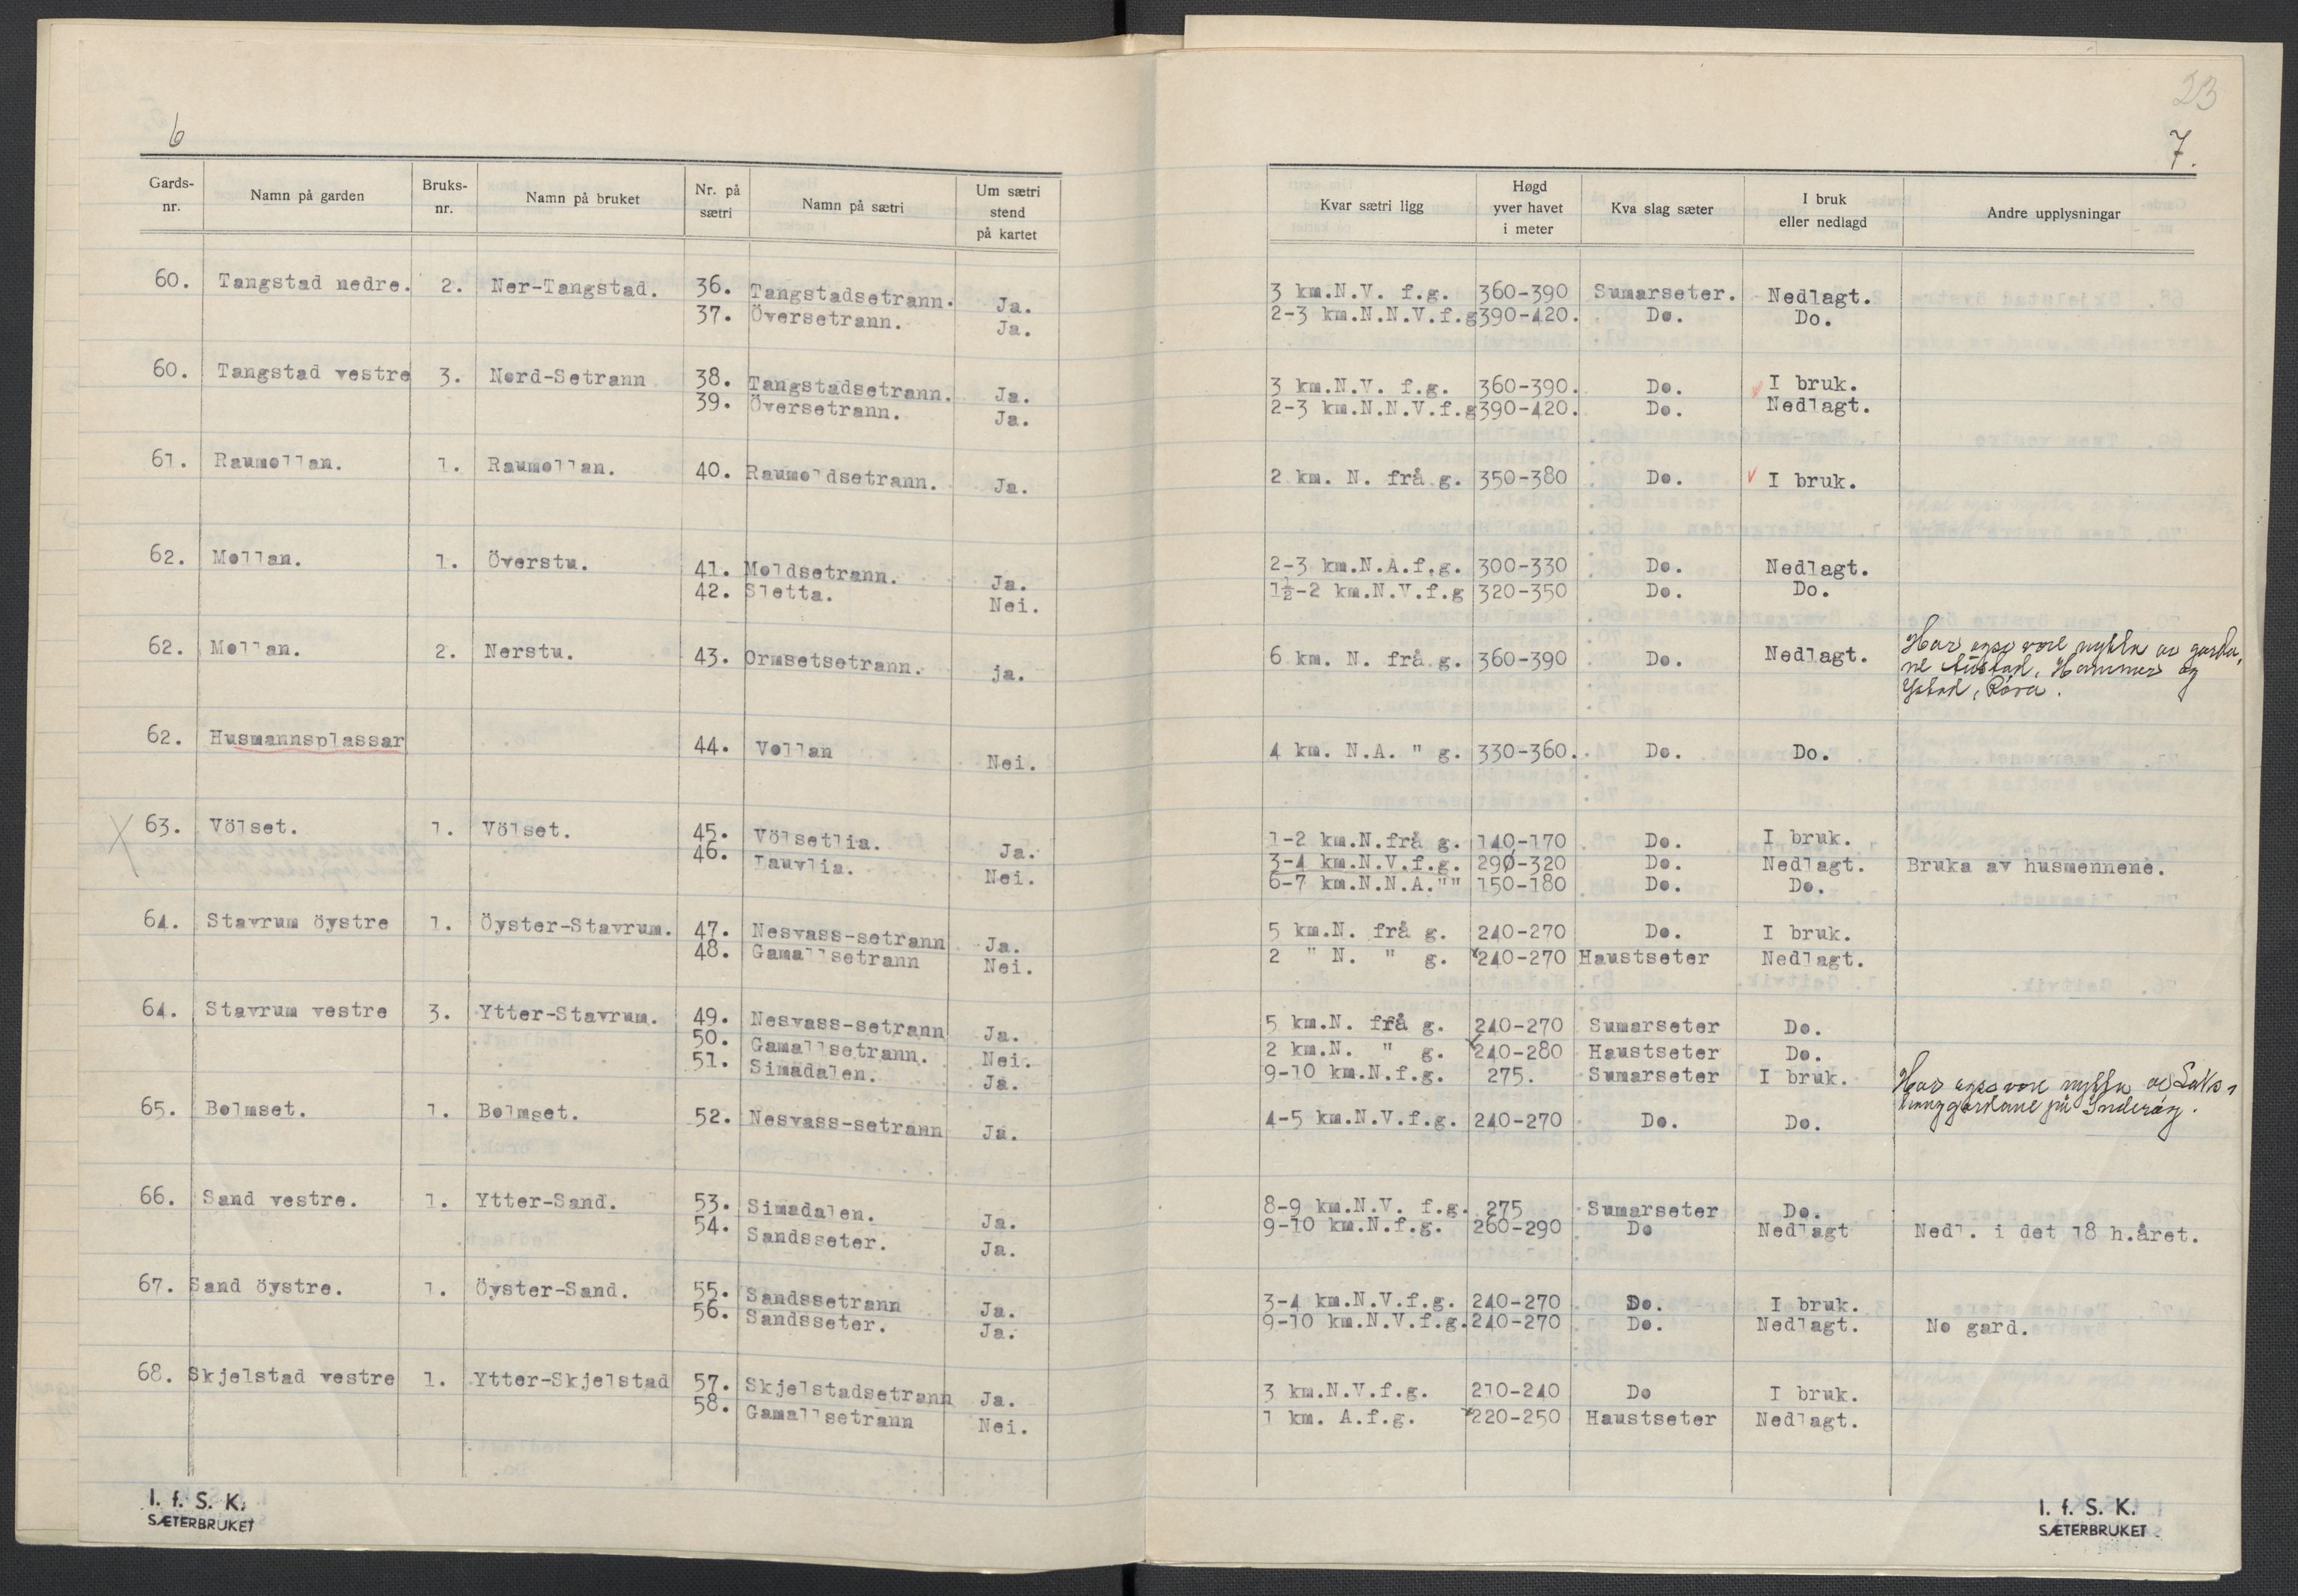 6
Gards-nr. Namn på garden Bruks-nr. Namn på bruket Nr. på sætri Namn på sætri Um sætri stend på kartet
60. Tangstad nedre. 2. Ner-Tangstad. 36. Tangstadsetrann. Ja.
37. Översetrann. Ja.
60. Tangstad vestre 3. Nord-Setrann 38. Tangstadsetrann. Ja.
39. Översetrann. Ja.
61. Raumollan. 1. Raumollan. 40. Raumoldsetrann. Ja.
62. Mollan. 1. Överstu. 41. Moldsetrann. Ja.
42. Sletta. Nei.
62. Mollan. 2. Nerstu. 43. Ormsetsetrann. ja.
62. Husmannsplassar 44. Vollan Nei.
63. Völset. 1. Völset. 45. Völsetlia. Ja.
46. Lauvlia. Nei.
64. Stavrum öystre 1. Öyster-Stavrum. 47. Nesvass-setrann Ja.
48. Gamallsetrann Nei.
64. Stavrum vestre 3. Ytter-Stavrum. 49. Nesvass-setrann Ja.
50. Gamallsetrann. Nei.
51. Simadalen. Ja.
65. Bolmset. 1. Bolmset. 52. Nesvass-setrann Ja.
66. Sand vestre. 1. Ytter-Sand. 53. Simadalen. Ja.
54. Sandsseter. Ja.
67. Sand öystre. 1. Öyster-Sand. 55. Sandssetrann Ja.
56. Sandsseter. Ja.
68. Skjelstad vestre 1. Ytter-Skjelstad 57. Skjelstadsetrann Ja.
58. Gamallsetrann Nei.
I. f. S. K.
SÆTERBRUKET
23
7.
Kvar sætri ligg Høgd yver havet i meter Kva slag sæter I bruk eller nedlagd Andre upplysningar
3 km.N.V. f.g. 360-390 Sumarseter. Nedlagt.
2-3 km.N.N.V.f.g 390-420. Do. Do.
3 km.N.V. f.g. 360-390. Do. I bruk.
2-3 km.N.N.V.f.g 390-420. Do. Nedlagt.
2 km. N. frå g. 350-380 Do. I bruk.
2-3 km.N.A.f.g. 300-330 Do. Nedlagt.
1½-2 km.N.V.f.g 320-350 Do. Do.
6 km. N. frå g. 360-390 Do. Nedlagt. Har ogso vore nytta av garda,
ne Austad, Hammer og
Ystad, Röra.
4 km. N.A. " g. 330-360. Do. Do.
1-2 km.N.frå g. 140-170 Do. I bruk.
3-4 km.N.V.f.g. 290-320 Do. Nedlagt. Bruka av husmennene.
6-7 km.N.N.A."" 150-180 Do. Do.
5 km.N. frå g. 240-270 Do. I bruk.
2 " N. " g. 240-270 Haustseter Nedlagt.
5 km.N. frå g. 240-270 Sumarseter Do.
2 km.N. " g. 240-280 Haustseter Do.
9-10 km.N.f.g. 275. Sumarseter I bruk. Har ogso vore nytta av Saks-
hauggardane på Inderöy.
4-5 km.N.V.f.g. 240-270 Do. Do.
8-9 km.N.V. f.g. 275 Sumarseter Do.
9-10 km.N.f.g. 260-290 Do Nedlagt Nedl. i det 18 h.året.
3-4 km.N.V.f.g. 240-270 Do. I bruk.
9-10 km.N.V.f.g. 240-270 Do. Nedlagt. No gard.
3 km.N.V.f.g. 210-240 Do I bruk.
1 km. A.f.g. 220-250 Haustseter Nedlagt.
I. f. S. K.
SÆTERBRUKET